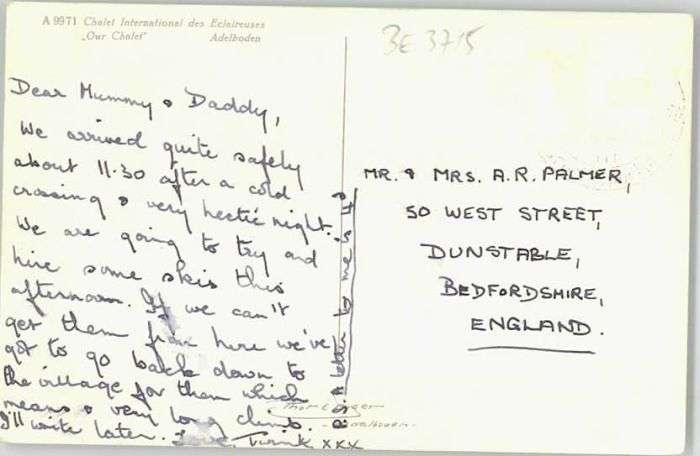 A 9971 Chalet International des Eclaireuses
„Our Chalet" Adelboden
BE 3715
Dear Mummy & Daddy,
We arrived quite safely
about 11.30 after a cold
crossing & very hectic night.
We are going to try and
hire some skis this
afternoon. If we can't
get them from here we've
got to go back down to
the village for them which
means a very long climb.
I'll write later. Love, xxx
a letter to me is 4d
MR. & MRS. A.R. PALMER,
50 WEST STREET,
DUNSTABLE,
BEDFORDSHIRE,
ENGLAND.
Adelboden